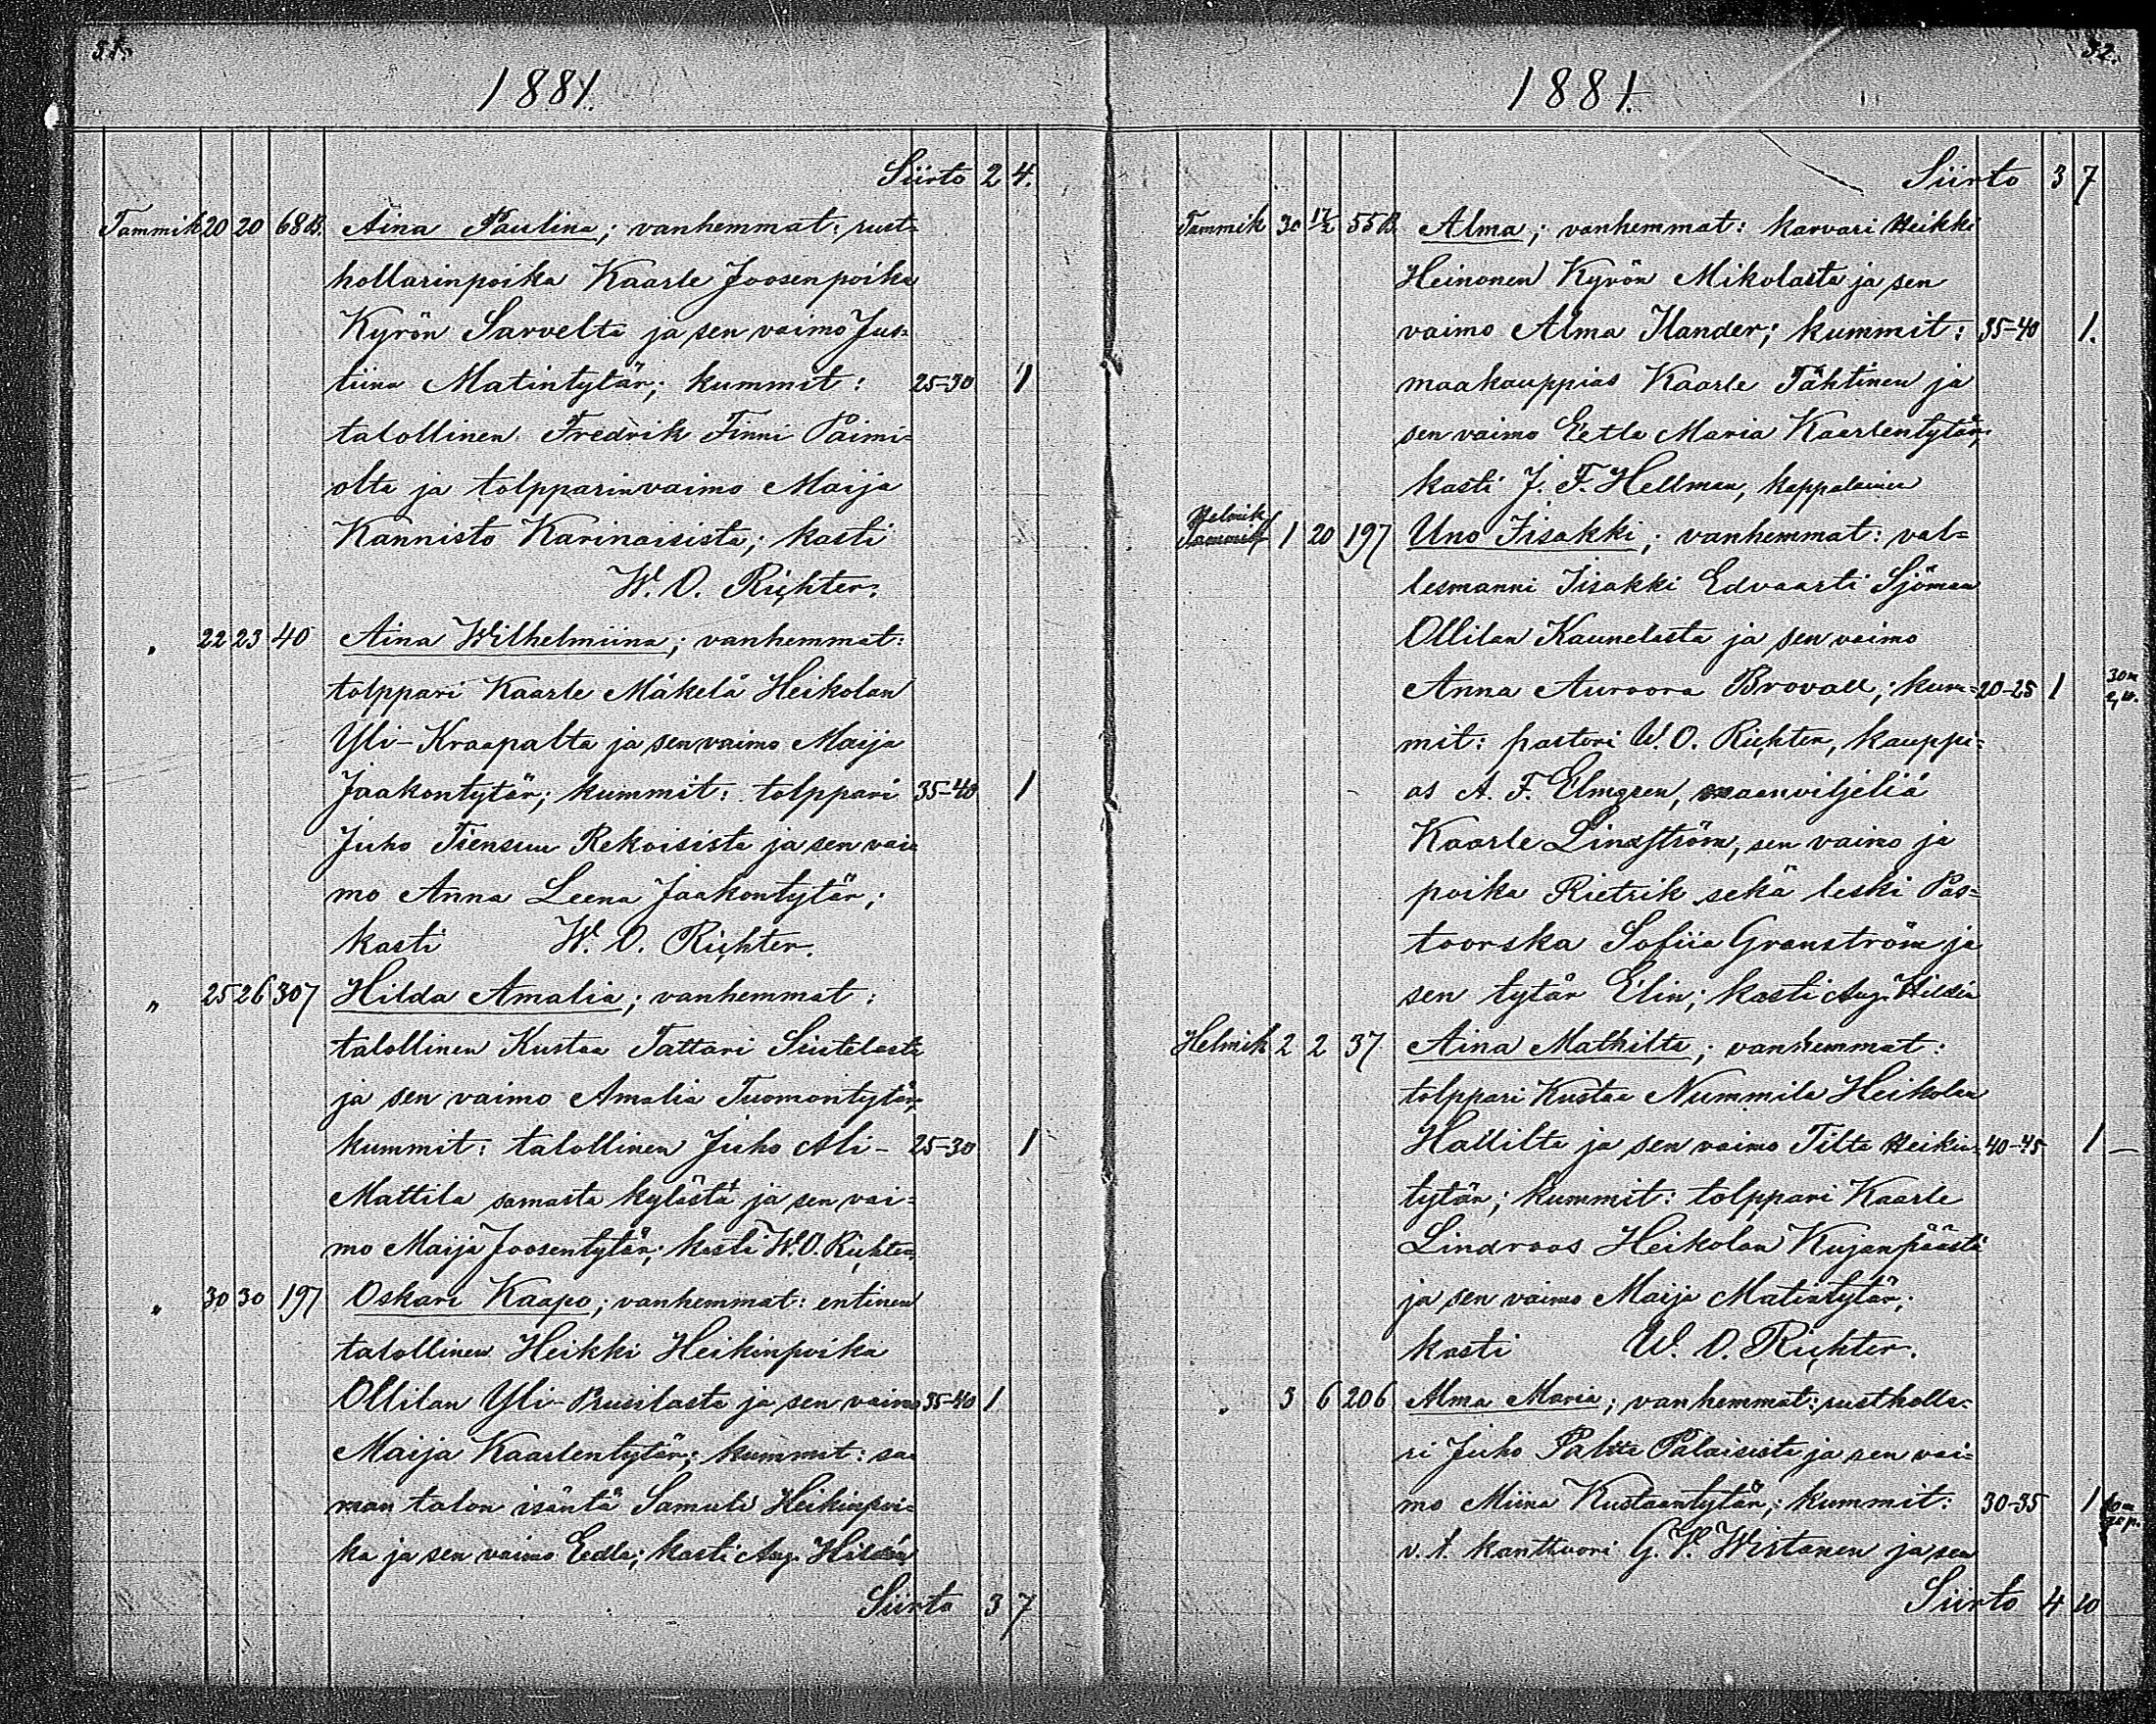 31.
1881.
Siirto 2 4.
Tammik 20 20 68 B. Aina Paulina; vanhemmat: rust=
hollarinpoika Kaarle Joosenpoika
Kyrön Sarvelta ja sen vaimo Jus=
tiina Matintytär; kummit: 25-30 1
talollinen Fredrik Finni Paimi=
olta ja tolpparinvaimo Maija
Kannisto Karinaisista; kasti
W. O. Richter.
" 22 23 40 Aina Wilhelmiina; vanhemmat:
tolppari Kaarle Mäkelä Heikolan
Yli-Kraapalta ja sen vaimo Maija
Jaakontytär; kummit: tolppari 35-40 1
Juho Tiensuu Rekoisista ja sen vai=
mo Anna Leena Jaakontytär;
kasti W. O. Richter.
" 25 26 307 Hilda Amalia; vanhemmat:
talollinen Kustaa Tattari Siutelasta
ja sen vaimo Amalia Tuomontytär;
kummit: talollinen Juho Ali- 25-30 1
Mattila samasta kylästä ja sen vai=
mo Maija Joosentytär; kasti W. O. Richter.
" 30 30 197 Oskari Kaapo; vanhemmat: entinen
talollinen Heikki Heikinpoika
Ollilan Yli-Prusilasta ja sen vaimo 35-40 1
Maija Kaarlentytär; kummit: sa=
man talon isäntä Samuli Heikinpoi=
ka ja sen vaimo Eedla; kasti Aug. Hildén
Siirto 3 7
32.
1881.
Siirto 3 7
Tammik 30 17/2 55 B. Alma; vanhemmat: karvari Heikki
Heinonen Kyrön Mikolasta ja sen
vaimo Alma Ilander; kummit: 35-40 1.
maakauppias Kaarle Tähtinen ja
sen vaimo Eetla Maria Kaarlentytär;
kasti J. F. Hellman, kappalainen
Helmik
Tammik 1 20 197 Uno Iisakki; vanhemmat: val=
lesmanni Iisakki Edvaarti Sjöman
Ollilan Kaunelasta ja sen vaimo
Anna Auroora Brovall; kum= 20-25 1
mit: pastori W. O. Richter, kauppi=
as A. F. Elmgren, maanviljeliä
Kaarle Lindström, sen vaimo ja
poika Rietrik sekä leski Pas=
toorska Sofiia Granström ja
sen tytär Elin; kasti Aug. Hildén
Helmik 2 2 37 Aina Mathilta; vanhemmat:
tolppari Kustaa Nummila Heikolan
Hallilta ja sen vaimo Tilta Heikin= 40-45 1 —
tytär; kummit: tolppari Kaarle
Lindroos Heikolan Kujanpäästä
ja sen vaimo Maija Matintytär;
kasti W. O. Richter.
" 3 6 206 Alma Maria; vanhemmat: rustholla=
ri Juho Paltta Palaisista ja sen vai=
mo Miina Kustaantytär; kummit: 30-35 1
v. t. kanttoori G. V. Wirtanen ja sen
Siirto 4 10